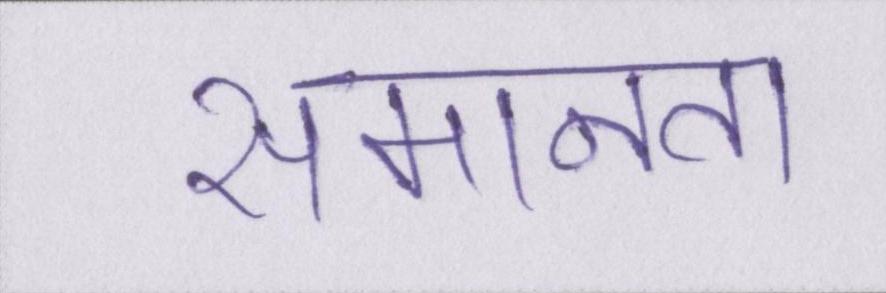 समानता